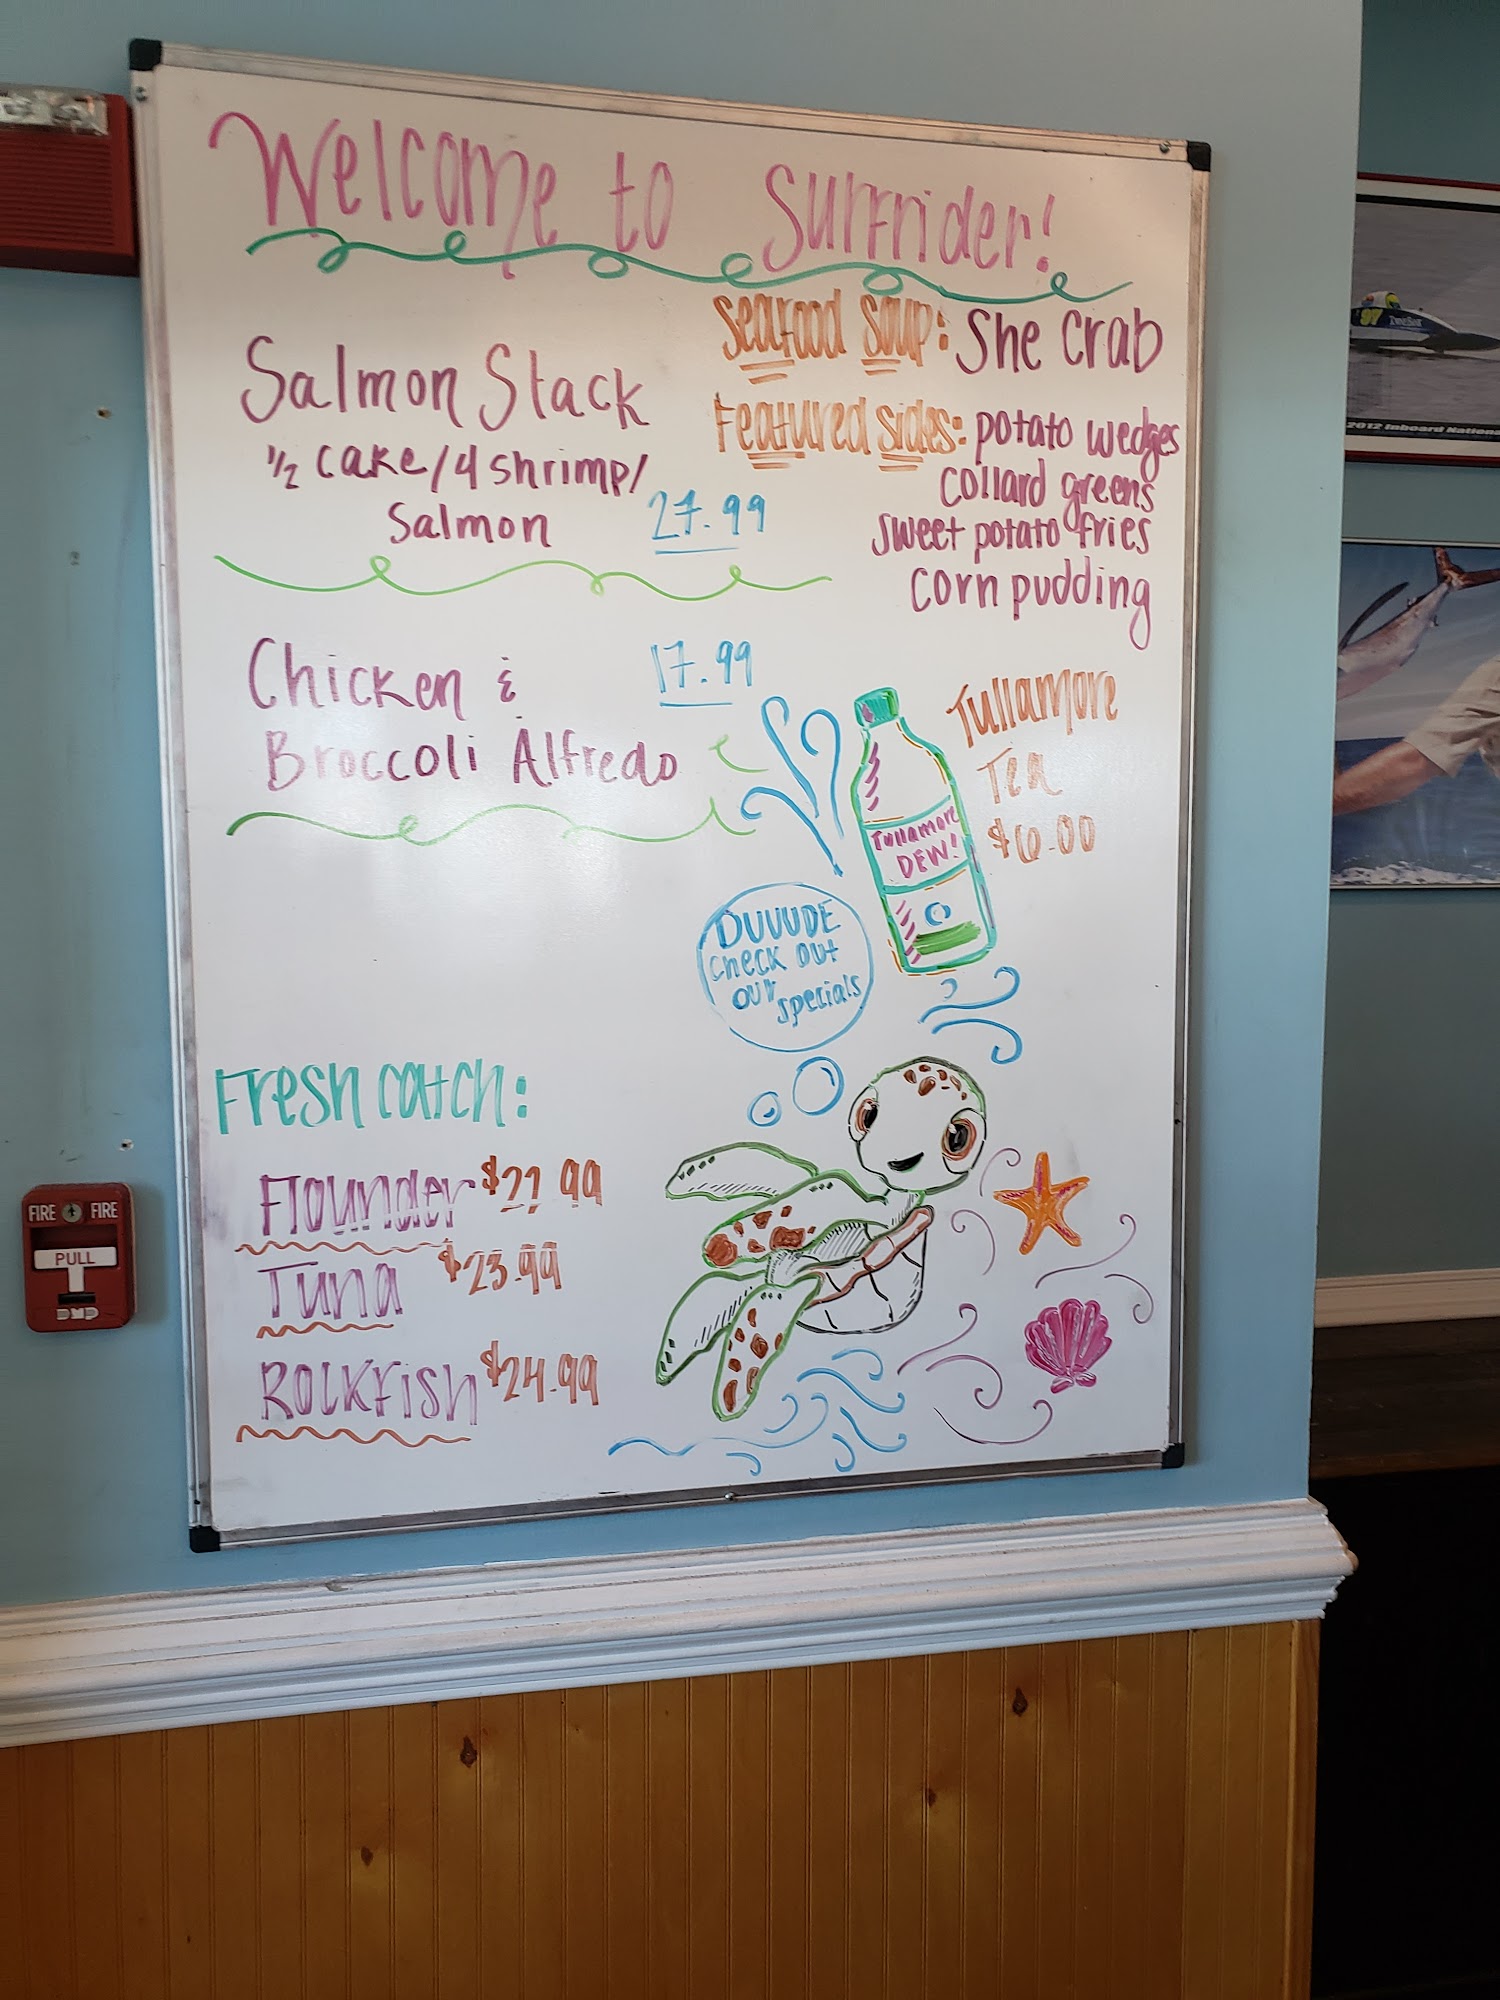 Welcome to Surfrider!
Seafood Soup: She Crab
Featured sides: potato wedges
collard greens
sweet potato fries
corn pudding
Salmon Stack
1/2 cake/4 shrimp/
Salmon 27.99
Chicken & 17.99
Broccoli Alfredo
Tullamore
Tea
$6.00
Tullamore
DEW!
DUUUDE
check out
our specials
Fresh catch:
Flounder
Tuna $23.99
Rockfish $24.99
FIRE FIRE
PULL
97
2012 Inboard Nation